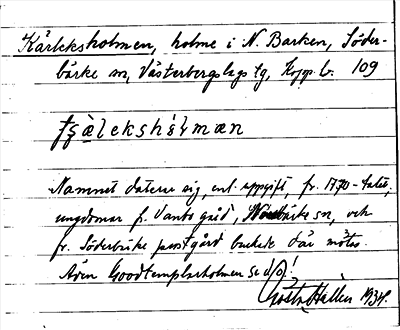 Kärleksholmen, holme i N. Barken, Söder-
bärke sn, Västerbergslags tg, Kopp. l. 109
Namnet daterar sig, enl. uppgift, fr. 1770-talet,
ungdomar fr. Vanbo gård, sn, och
fr. Söderbärke prostgård brukade där mötas.
Även Goodtemplarholmen se d/o!
Gösta Hallén 1934.